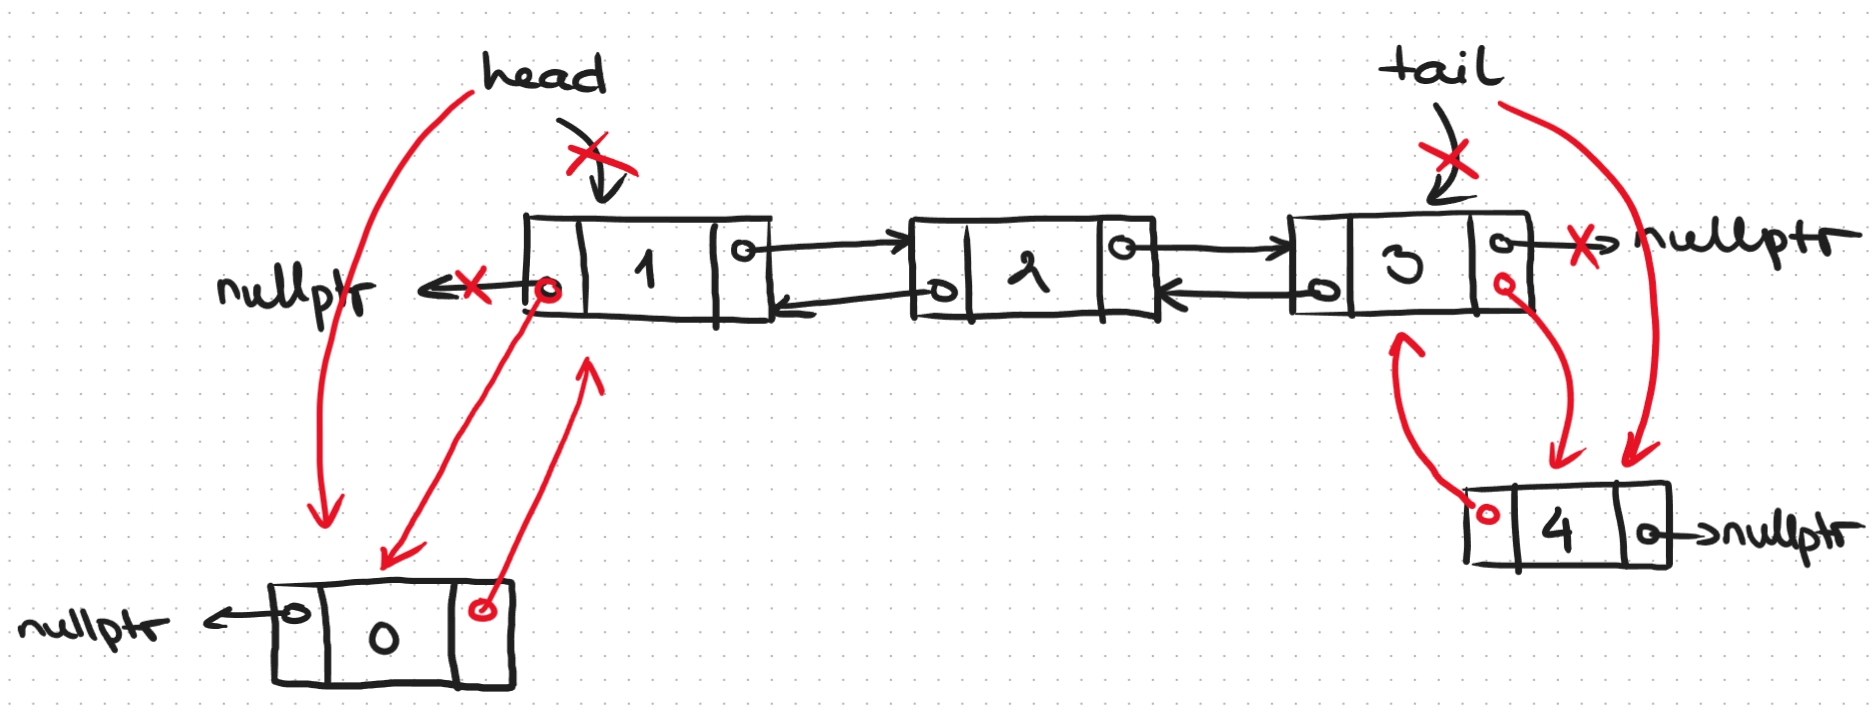 head
tail
nullptr
1
2
3
nullptr
nullptr
0
4
nullptr